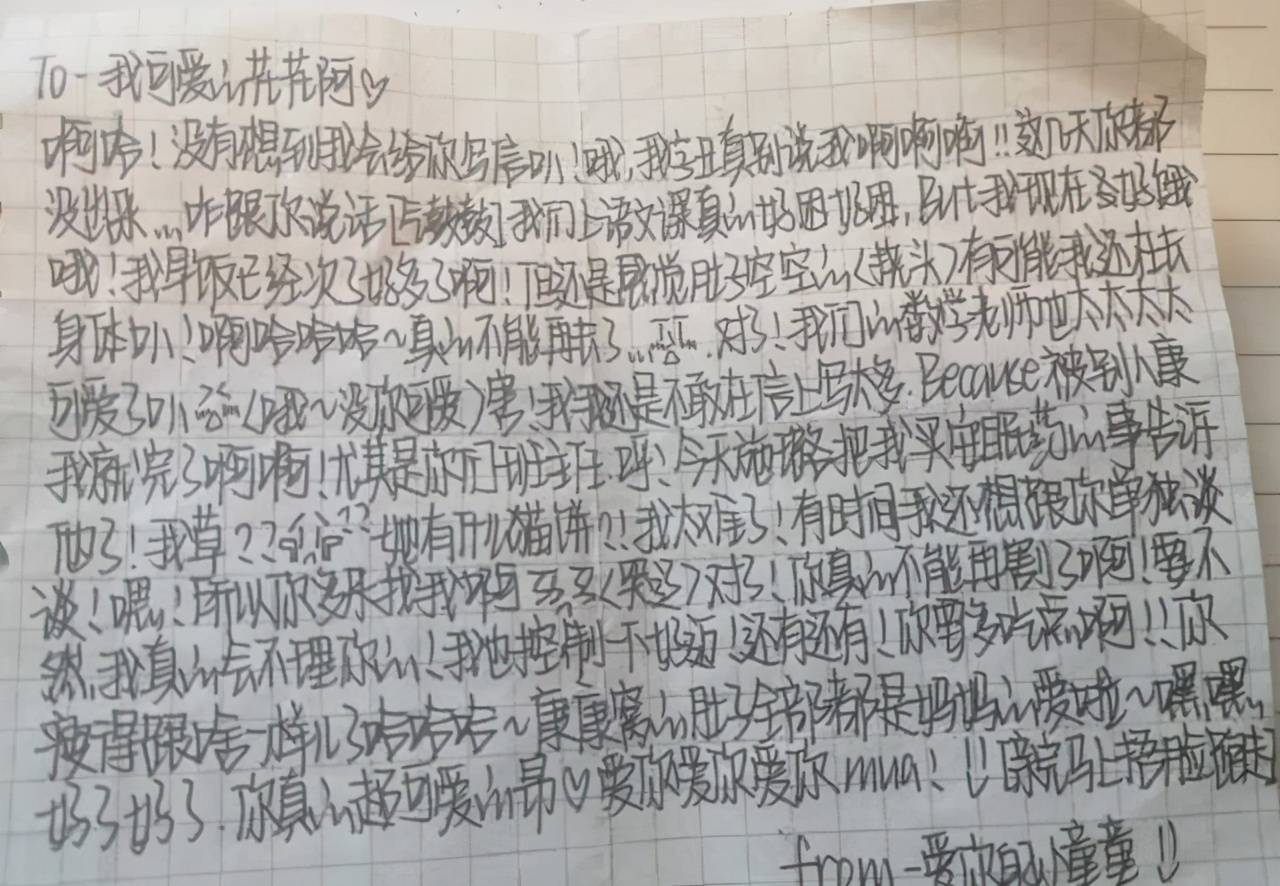 To-我可爱的花花阿♡
啊哈！没有想到我会给你写信叭！哦,我字丑真别说我啊啊啊!!这几天你都
没出来...咋跟你说话[气鼓鼓]我们上语文课真的好困好困,But我现在好饿
哦！我早饭已经次了好多了啊！但还是感觉肚子空空的(挠头)有可能我还在长
身体叭！啊哈哈哈～真的不能再长了...对了！我们的数学老师也太太太太
可爱了叭(哦～没你可爱)害！我还是不敢在信上写太多.Because被别人康
我就完了啊啊！尤其是你们班班主任.呼！今天施璐把我买安眠药的事告诉
他了！我草？？她有什么猫饼？！我太难了！有时间我还想跟你单独谈
谈！嘿！所以你多来找我啊(哭泣)对了！你真的不能再割了啊！要不
然,我真的会不理你的！我也控制一下好迈！还有还有！你要多吃点啊！！你
瘦得跟啥一样儿了哈哈哈～康康窝的肚子全部都是妈妈的爱啦～嘿嘿
好了好了.你真的超可爱的昂♡爱你爱你爱你mua！!!亲完马上捂脸跑走]
from-爱你的童童!!